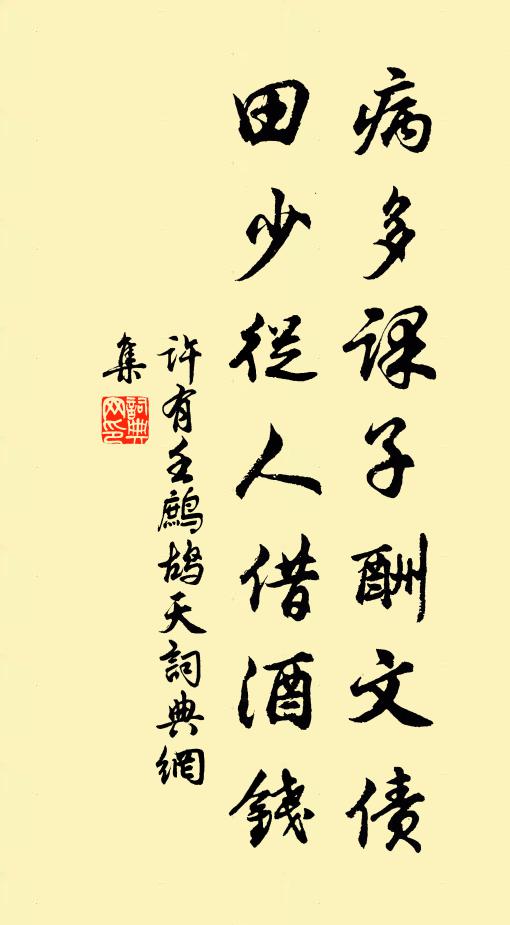 病多課子酬文債
田少從人借酒錢
許有壬鷓鴣天詞典網
集
詞典網印